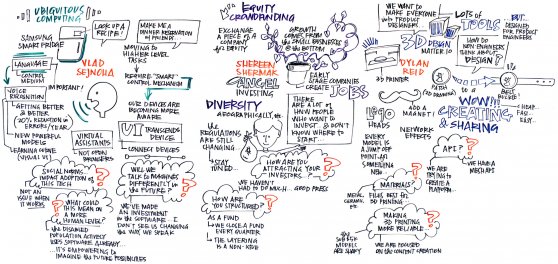 UBIQUITOUS
COMPUTING
SAMSUNG
SMART FRIDGE
LOOK UP A
RECIPE!
MAKE ME A
DINNER RESERVATION
W/ FRIENDS
MOVING TO
HIGHER LEVEL
TASKS
LANGUAGE
CONTROL
MEDIUM
VLAD
SEJNOHA
REQUIRE "SMART"
CONTROL MECHANISM
VOICE
RECOGNITION
IMPORTANT!
GETTING BETTER
& BETTER
20% REDUCTION IN
ERRORS/YEAR
OUR DEVICES ARE
BECOMING MORE
AWARE
VIRTUAL
ASSISTANTS
UI TRANSCENDS
DEVICES
CONNECT DEVICES
SOCIAL NORMS
IMPACT ADOPTION OF
THIS TECH
NOT AN
ISSUE WHEN
IT WORKS
WILL WE
TALK TO MACHINES
DIFFERENTLY IN
THE FUTURE?
WHAT COULD
THIS MEAN ON
A MORE
HUMAN LEVEL?
WE'VE MADE
AN INVESTMENT
IN THE SOFTWARE. I
DON'T SEE US CHANGING
THE WAY WE SPEAK
THE DISABLED
POPULATION ACTIVELY
USES SOFTWARE ALREADY...
...IT'S EMPOWERING TO
IMAGINE THE FUTURE POSSIBILITIES
EQUITY
CROWDFUNDING
EXCHANGE
A PIECE OF A
COMPANY
for EQUITY
GROWTH
COMES FROM
the SMALL BUSINESS
@ THE BOTTOM
SHEREEN
SHERMAK
ANGEL
INVESTING
EARLY
STAGE COMPANIES
CREATE
JOBS
DIVERSITY
GEOGRAPHICALLY, etc.
the
REGULATIONS
ARE STILL
CHANGING
STAY
TUNED...
THERE
ARE A LOT
of MORE
PEOPLE WHO
WANT to
INVEST & DON'T
KNOW WHERE to
START...
HOW ARE YOU
ATTRACTING YOUR
INVESTORS
WE HAVEN'T
HAD TO DO MUCH... GOOD PRESS
HOW ARE
YOU STRUCTURED?
AS A FUND
WE CLOSE A FUND
EVERY QUARTER
THE LAYERING IS
A NON-ISSUE
WE WANT TO
MAKE EVERYONE
into PRODUCT
DESIGNERS
LOTS of
TOOLS
BUT...
DESIGNED
for PRODUCT
ENGINEERS
3D
DESIGN
MATTER.IO
HOW DO
NON ENGINEERS
THINK ABOUT
DESIGN?
DYLAN
REID
3D PRINTER
WOW!!!
CREATING
& SHARING
CHEAP
FAST
EASY
1890
HEADS
ADD A
MAGNET!
NETWORK
EFFECTS
EVERY
MODEL IS
A JUMP
OFF POINT
for
SOMETHING
NEW
API?
WE ARE
TRYING to
CREATE A
PLATFORM
WE HAVE A
MESH API
MATERIALS
METAL
CERAMIC
etc.
MAKING
3D PRINTING
MORE RELIABLE
MODELS
ARE SHAKY
WE ARE FOCUSED
ON THE CONTENT CREATION